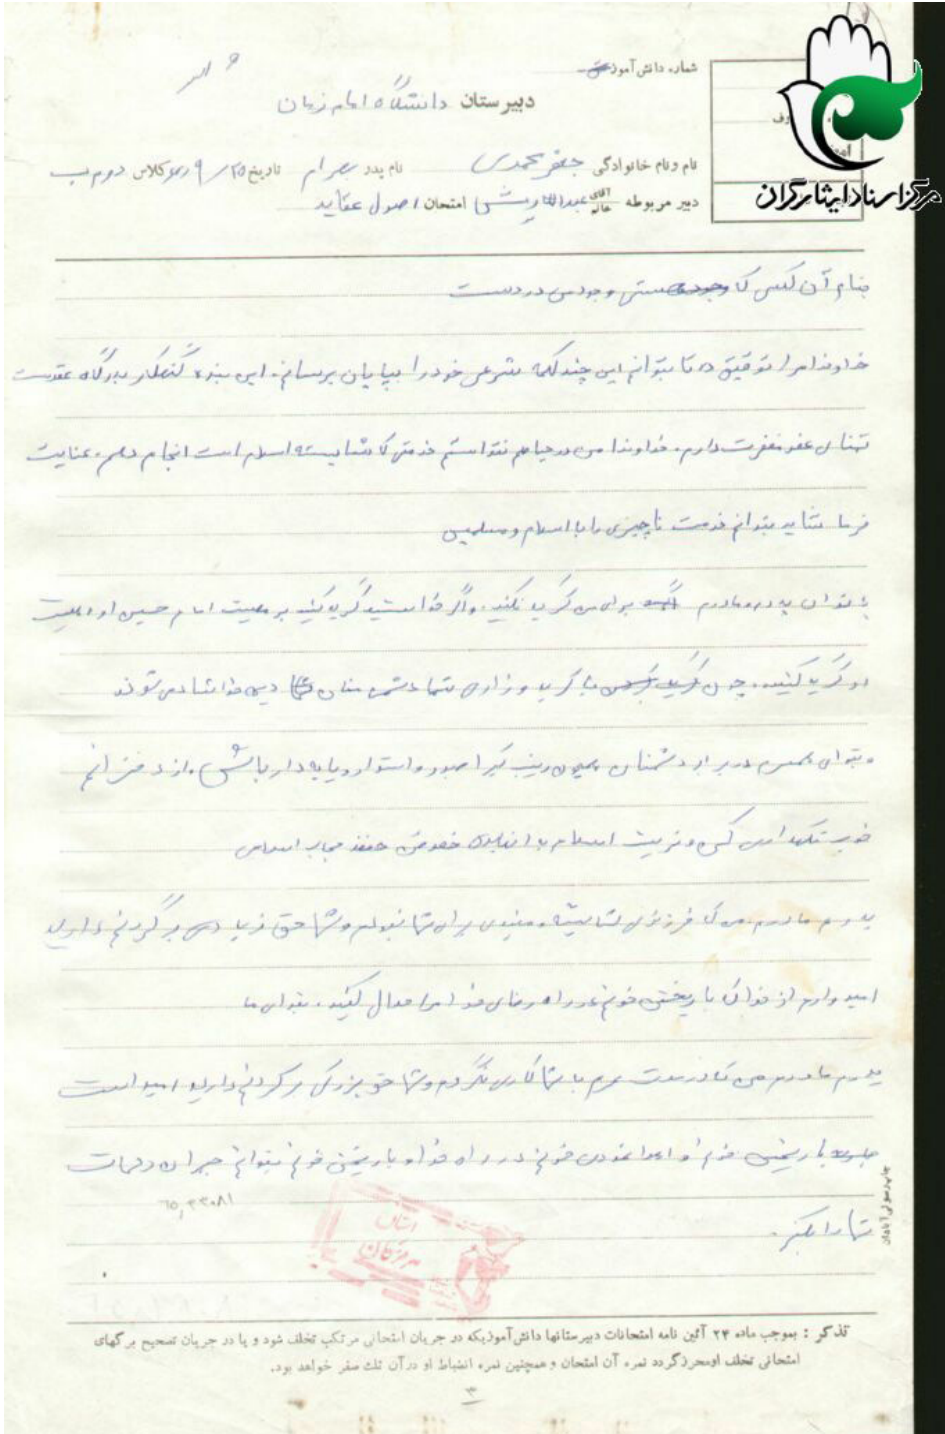 شماره دانش آموز
دبیرستان دانشگاه امام زمان
نام و نام خانوادگی جعفر محمدی نام پدر بهرام تاریخ ۲۵/۹ کلاس دوم ب
دبیر مربوطه آقای خانم امتحان اصول عقاید
مرکز اسناد ایثارگران
بنام آن کسی که هستی وجودم در دست
خداوندا مرا توفیق ده تا بتوانم این چند کلمه شرعی خود را بپایان برسانم. این بنده گنهکار بدرگاه مقدست
تمنای عفو مغفرت دارم. خداوندا من در حیاتم نتوانستم خدمتی که شایسته اسلام است انجام دهم. عنایت
فرما شاید بتوانم خدمت ناچیزی را با اسلام و مسلمین
پدر و مادرم برای من گریه نکنید. و اگر خواستید گریه کنید بر مصیبت امام حسین
گریه کنید. چون با گریه و زاری شما دشمنان دین خدا شاد می شوند
و همسرم در برابر دشمنان همچون زینب کبرا صبور و استوار و پایدار باش و از دخترانم
خوب نگهداری کنی و تربیت اسلام خصوص حفظ حجاب اسلامی
پدرم مادرم من که فرزندی شایسته برای شما نبودم و شما حق زیادی بر گردنم دارید
امیدوارم از خدا که با ریختن خونم در راه رضای خدا مرا حلال کنید.
پدرم مادرم من که در مدت عمرم با شما کاری نکردم و شما حق بزرگی بر گردنم دارید امید است
با ریختن خونم و اهدا نمودن خونم در راه خدا و با ریختن خونم بتوانم جبران زحمات
شما را بکنم.
استان هرمزگان
تذکر : بموجب ماده ۲۴ آئین نامه امتحانات دبیرستانها دانش آموزیکه در جریان امتحانی مرتکب تخلف شود و یا در جریان تصحیح برگهای
امتحانی تخلف او محرز گردد نمره آن امتحان و همچنین نمره انضباط او در آن ثلث صفر خواهد بود.
۳